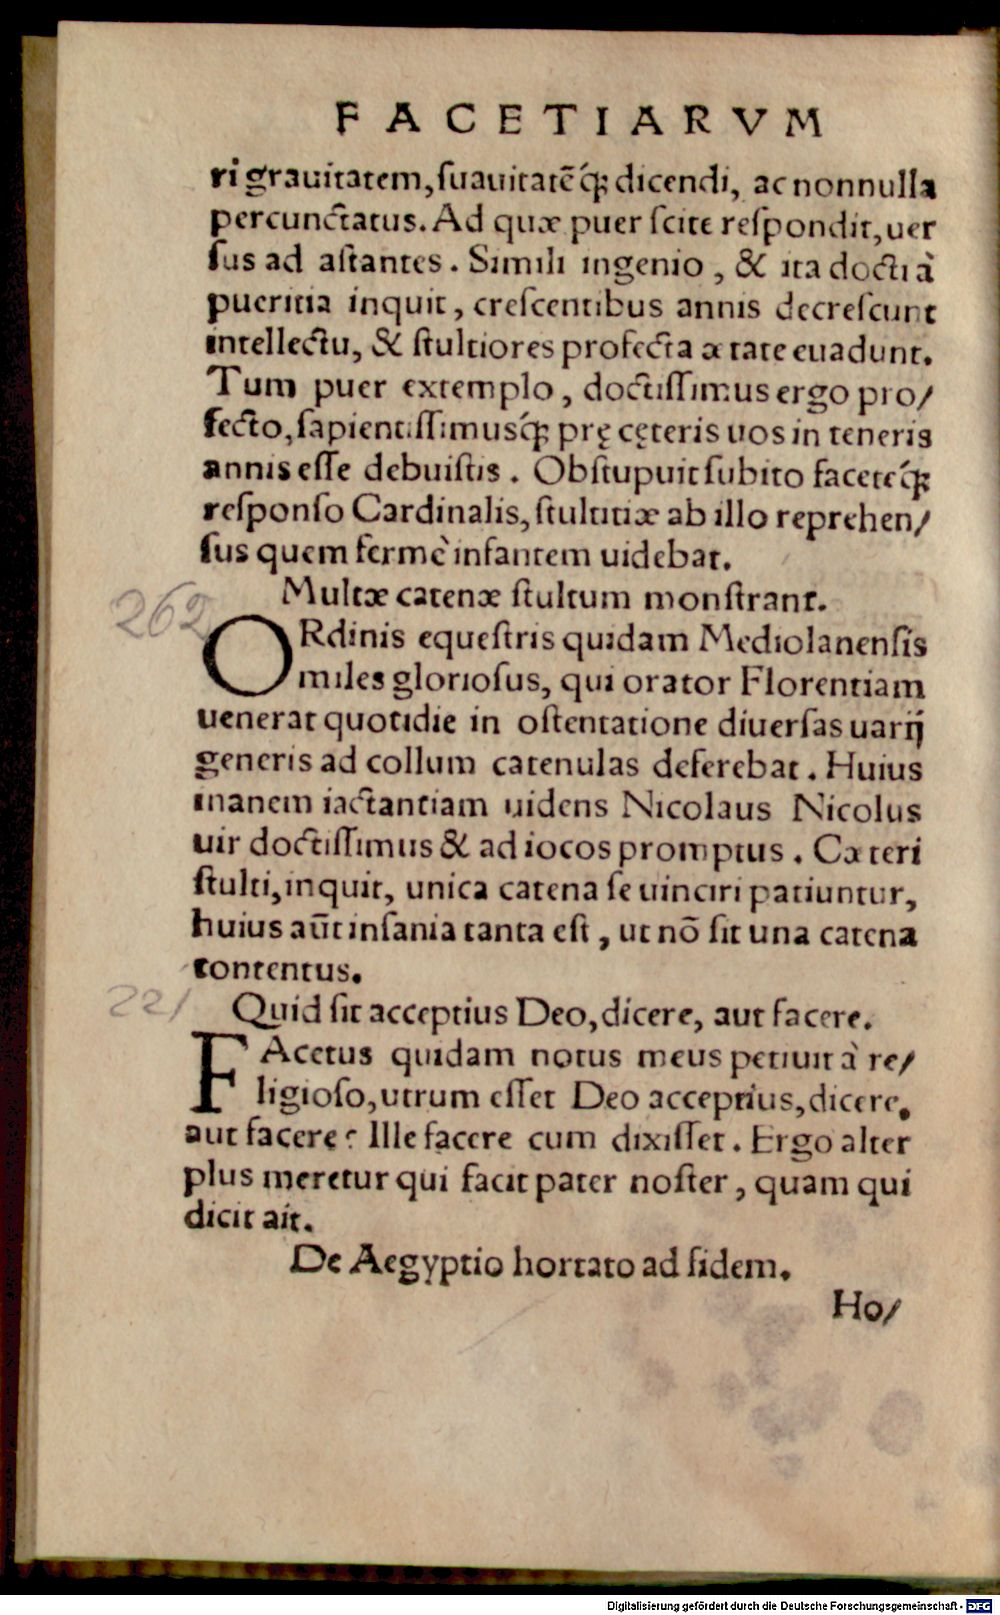 FACETIARVM
ri grauitatem, ſuauitatē q́ꝫ dicendi, ac nonnulla
percunctatus. Ad quæ puer ſcite reſpondit, uer
ſus ad aſtantes. Simili ingenio, & ita docti à
pueritia inquit, creſcentibus annis decreſcunt
intellectu, & ſtultiores profecta ætate euadunt.
Tum puer extemplo, doctiſſimus ergo pro/
fecto, ſapientiſſimusq́ꝫ prę cęteris uos in teneris
annis eſſe debuiſtis. Obſtupuit ſubito faceteq́ꝫ
reſponſo Cardinalis, ſtultitiæ ab illo reprehen/
ſus quem fermè infantem uidebat.
Multæ catenæ ſtultum monſtrant.
262
ORdinis equeſtris quidam Mediolanenſis
miles glorioſus, qui orator Florentiam
uenerat quotidie in oſtentatione diuerſas uarij
generis ad collum catenulas deferebat. Huius
inanem iactantiam uidens Nicolaus Nicolus
uir doctiſſimus & ad iocos promptus. Cæteri
ſtulti, inquit, unica catena ſe uinciri patiuntur,
huius aūt inſania tanta eſt, ut nō ſit una catena
contentus.
221
Quid ſit acceptius Deo, dicere, aut facere.
FAcetus quidam notus meus petiuit à re/
ligioſo, utrum eſſet Deo acceptius, dicere,
aut facere? Ille facere cum dixiſſet. Ergo alter
plus meretur qui facit pater noſter, quam qui
dicit ait.
De Aegyptio hortato ad fidem.
Ho/
Digitalisierung gefördert durch die Deutsche Forschungsgemeinschaft - DFG